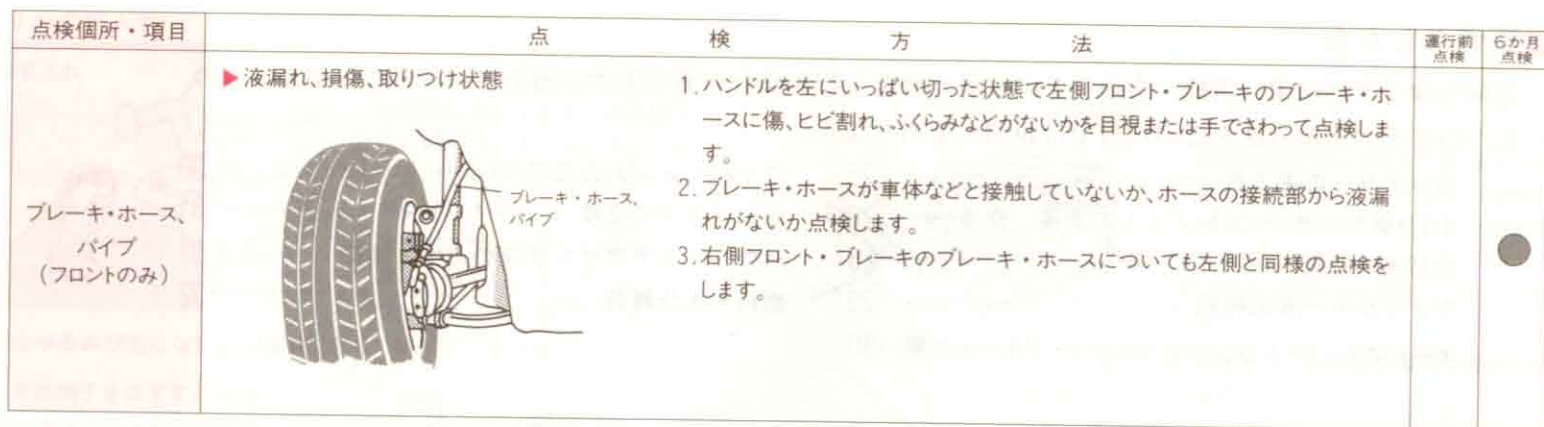 点検個所・項目
点検方法
運行前
点検
6か月
点検
ブレーキ・ホース、
パイプ
(フロントのみ)
▶液漏れ、損傷、取りつけ状態
ブレーキ・ホース、
パイプ
1.ハンドルを左にいっぱい切った状態で左側フロント・ブレーキのブレーキ・ホ
ースに傷、ヒビ割れ、ふくらみなどがないかを目視または手でさわって点検しま
す。
2.ブレーキ・ホースが車体などと接触していないか、ホースの接続部から液漏
れがないか点検します。
3.右側フロント・ブレーキのブレーキ・ホースについても左側と同様の点検を
します。
●